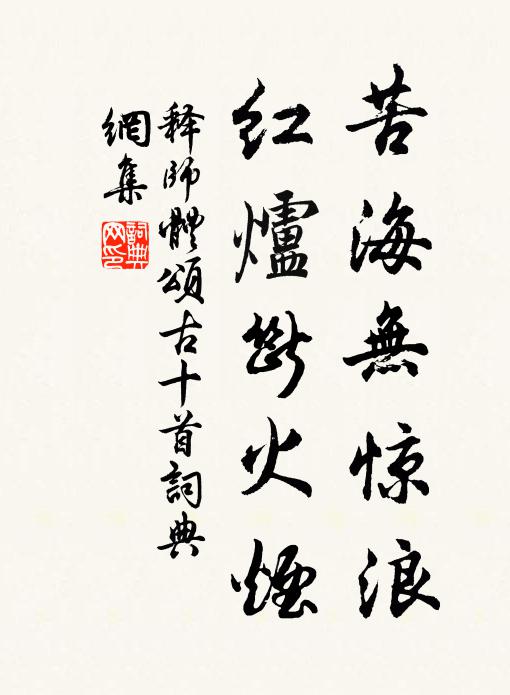 苦海無惊浪
红爐斷火煙
释師體頌古十首詞典
網集
詞典
网印